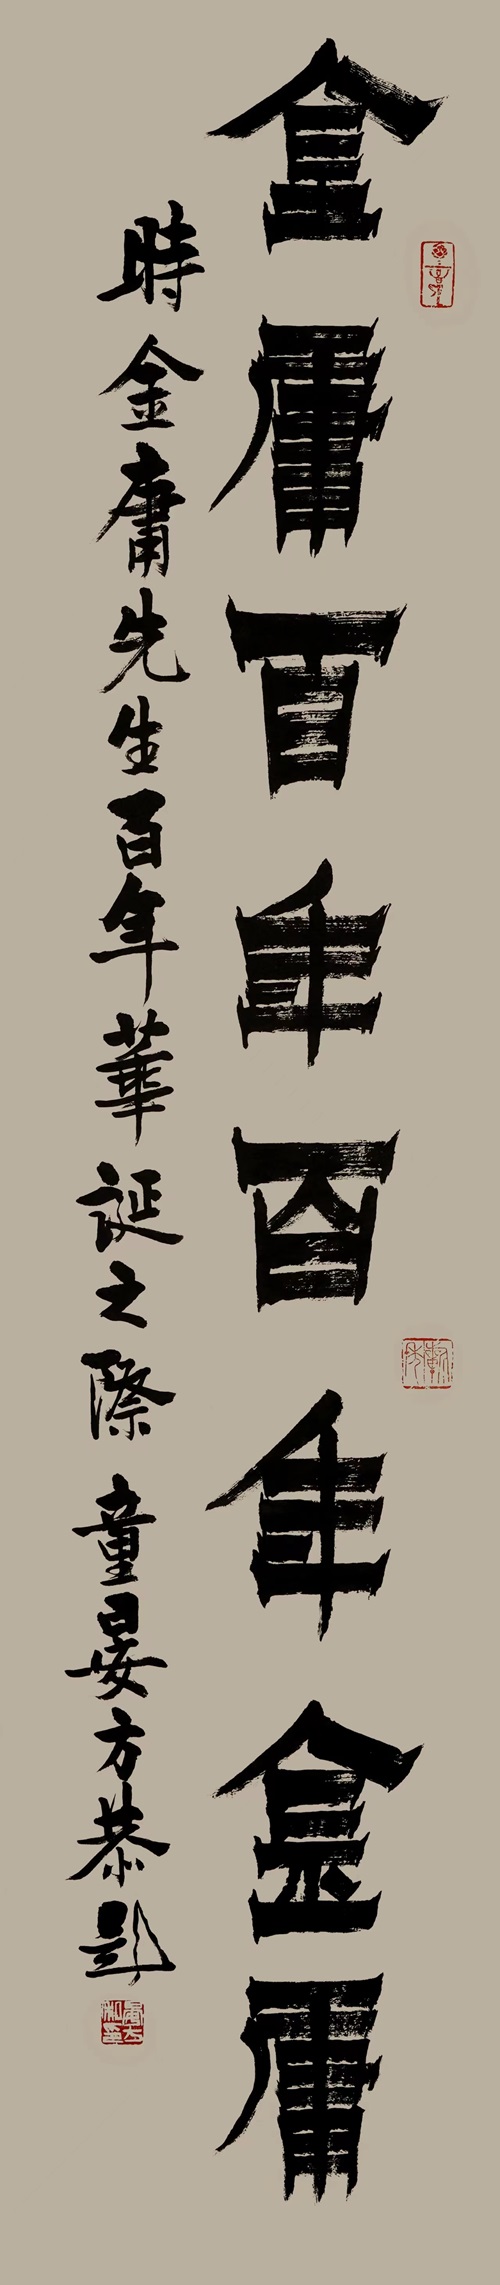 金庸百年百年金庸
時金庸先生百年華誕之際童晏方恭題